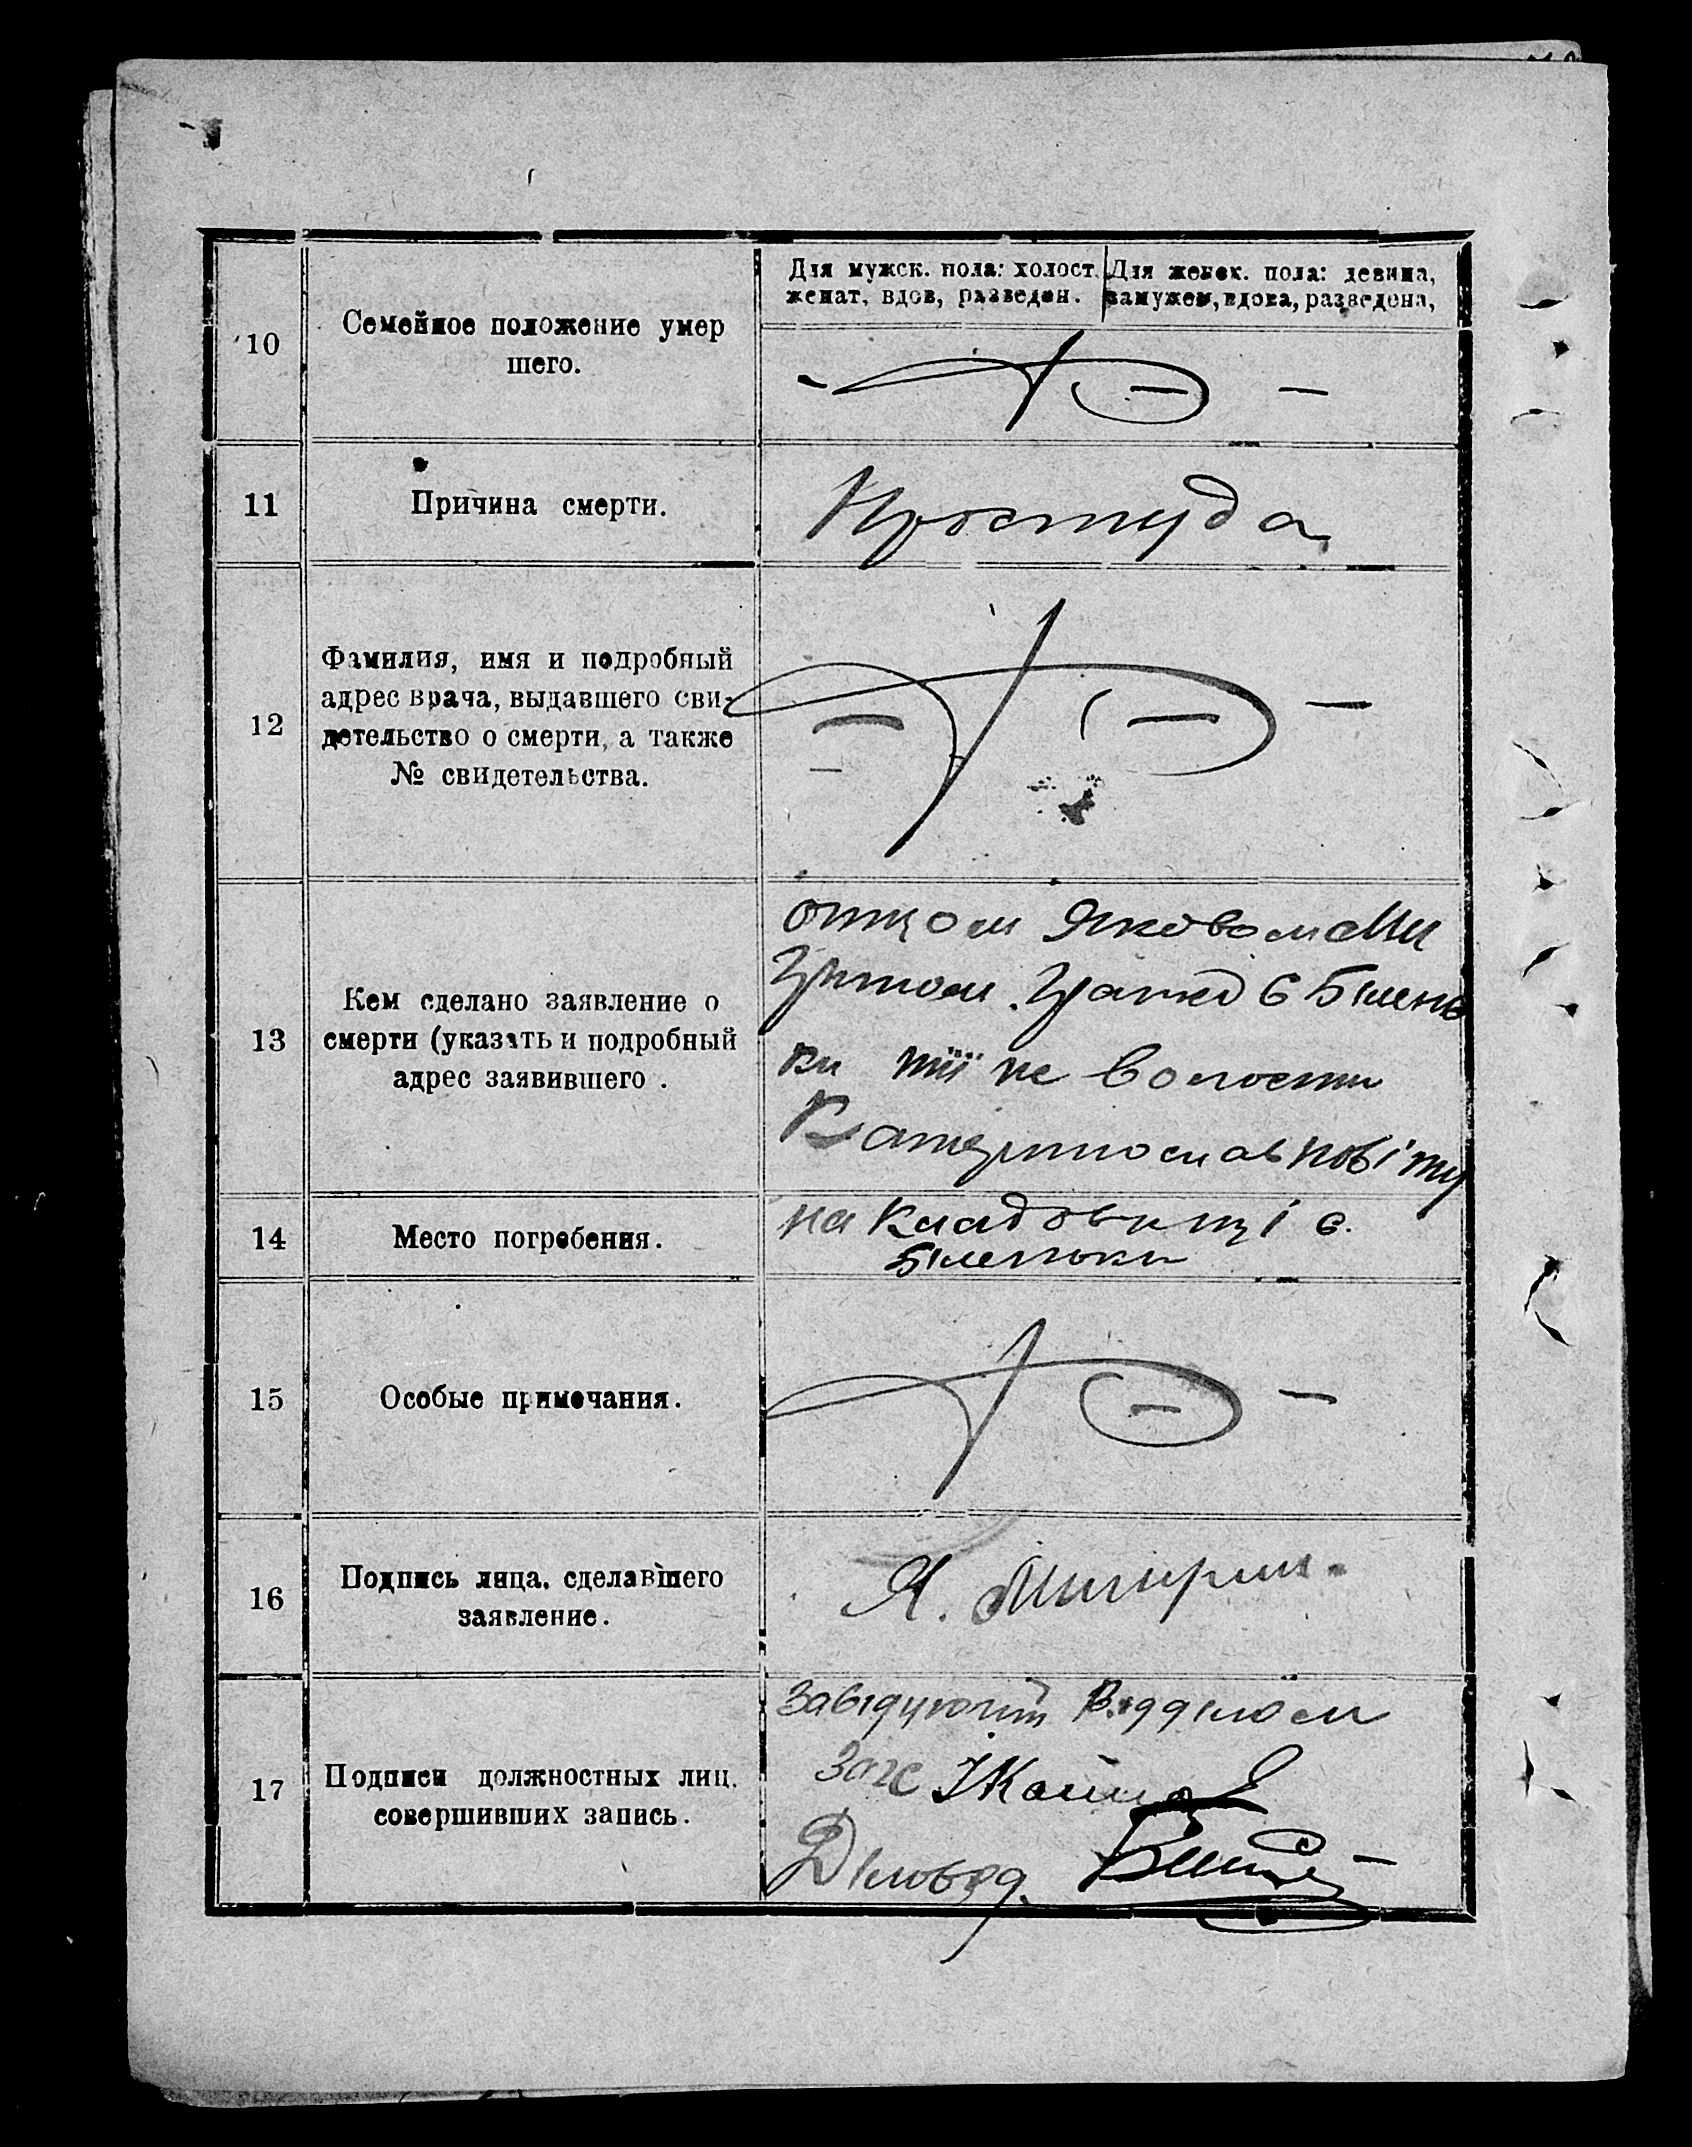 Для мужск. пола: холост. женат, вдов, разведен.
Для женск. пола: девица, замужем, вдова, разведена,
10
Семейное положение умер
шего.
11
Причина смерти.
Простуда
12
Фамилия, имя и подробный
адрес врача, выдавшего сви-
детельство о смерти, а также
№ свидетельства.
13
Кем сделано заявление о
смерти (указать и подробный
адрес заявившего.
отцом Яковом
Гражд с Білень
ки тіїже волости
Катеринослав повіту
14
Место погребения.
на кладовищі с.
Біленьки
15
Особые примечания.
16
Подпись лица, сделавшего
заявление.
Я.
17
Подписи должностных лиц,
совершивших запись.
Завідуючий Відділом
Загс
Діловод